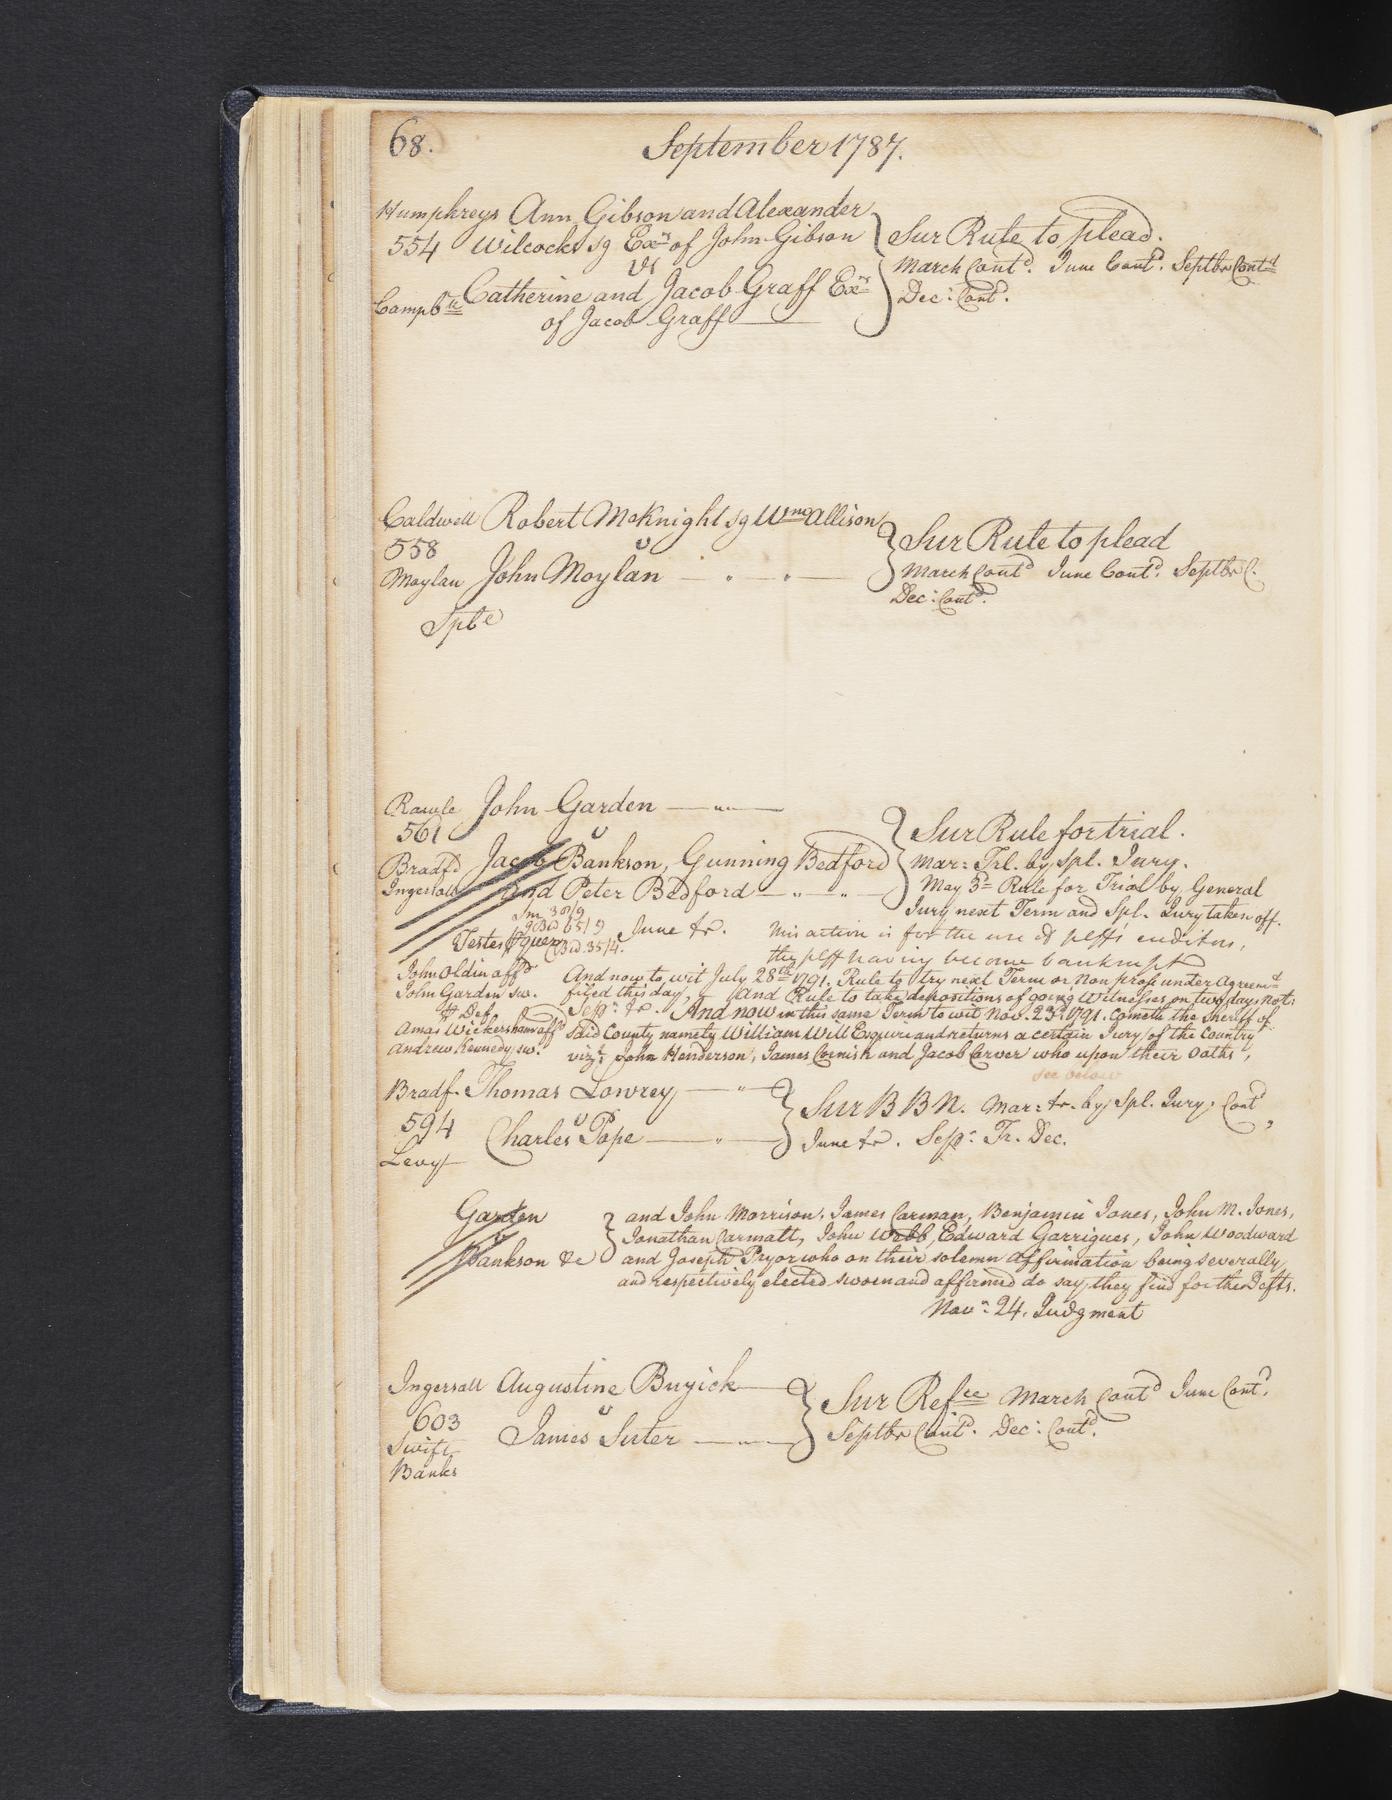 68.
September 1787.
Humphreys Ann Gibson and Alexander
554 Wilcocks sg Exrs of John Gibson } Sur Rule to plead.
vs
March Contd. June Contd. Septbr Contd
Campble Catherine and Jacob Graff Exrs Dec: Contd.
of Jacob Graff
Caldwell Robert McKnight sg Wm Allison } Sur Rule to plead
558 v
Moylan John Moylan March Contd June Contd. Septbr C.
Dec: Contd.
Sple
Rawle John Garden
561 v } Sur Rule for trial.
Bradfd Jacob Bankson, Gunning Bedford Mar: Trl. by Spl. Jury.
Ingersoll and Peter Bedford May 3d Rule for Trial by General
Jury next Term and Spl. Jury taken off.
June tr. This action is for the use of pltffs creditors,
Testes
the pltff having become bankrupt
John Oldin affd And now to wit July 28th 1791. Rule to try next Term or Non pross under Agreemt
John Garden sw. filed this day, And Rule to take depositions of going Witnesses on two days not:
Def Sepr: tr. And now in this same Term to wit Nov. 23d 1791. cometh the sheriff of
Amas Wickersham affd said County namely William Will Esquire and returns a certain Jury of the Country
Andrew Kennedy sw. vizt John Henderson, James Cornish and Jacob Carver who upon their Oaths,
see below
Bradf. Thomas Lowrey } Sur B B N. Mar: tr. by Spl. Jury. Contd,
594 v
Charles Pope June tr. Sepr: Tr. Dec.
Levy
Garden } and John Morrison, James Carman, Benjamin Jones, John M. Jones,
v Jonathan Carmalt, John Webb, Edward Garrigues, John Woodward
Bankson &c and Joseph Pryor who on their solemn Affirmation being severally
and respectively elected sworn and affirmed do say they find for the Defts.
Novr: 24. Judgment
Ingersoll Augustine Buyick } Sur Refce March Contd June Contd.
603 v
Swift James Suter Septbr Contd. Dec: Contd.
Banks